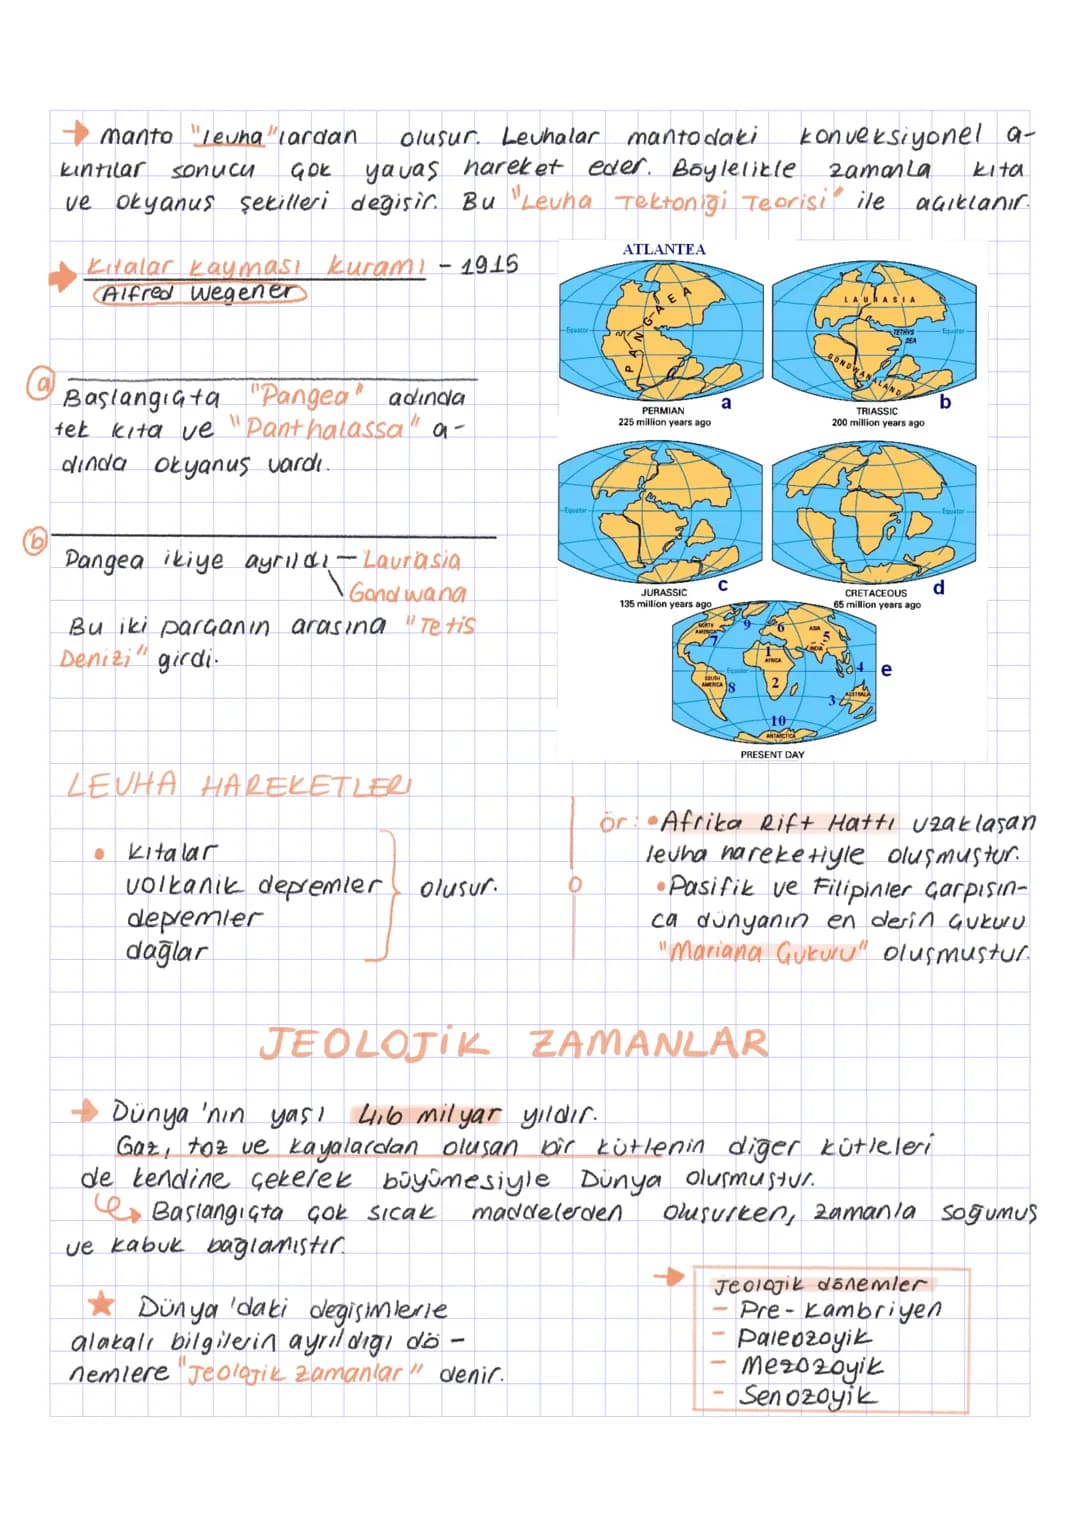 → manto "levha"lardan oluşur. Levhalar mantodaki konveksiyonel a-
kıntılar sonucu çok yavaş hareket eder. Böylelikle zamanla kıta
ve okyanus şekilleri değişir. Bu "Levha Tektoniği Teorisi" ile açıklanır.
→ Kıtalar kayması kuramı - 1915
Alfred Wegener
a
Başlangıçta "Pangea" adında
tek kıta ve "Panthalassa" a-
dında okyanus vardı.
b
Pangea ikiye ayrıldı - Laurasia
Gondwana
Bu iki parçanın arasına "Tetis
Denizi" girdi.
ATLANTEA
Equator
PANGAEA
PERMIAN
225 million years ago
a
LAURASIA
TETHYS
SEA
Equator
GONDWANALAND
TRIASSIC
200 million years ago
b
Equator
JURASSIC
135 million years ago
c
Equator
CRETACEOUS
65 million years ago
d
NORTH
AMERICA
7
9
6
ASIA
5
INDIA
1
AFRICA
2
Equator
SOUTH
AMERICA
8
4
3
AUSTRALIA
10
ANTARCTICA
e
PRESENT DAY
LEVHA HAREKETLERI
• Kıtalar
volkanik depremler
depremler
dağlar
oluşur.
ör: • Afrika Rift Hattı uzaklaşan
levha hareketiyle oluşmuştur.
• Pasifik ve Filipinler çarpışın-
ca dünyanın en derin çukuru
"Mariana Çukuru" oluşmuştur.
JEOLOJİK ZAMANLAR
→ Dünya'nın yaşı 4,6 milyar yıldır.
Gaz, toz ve kayalardan oluşan bir kütlenin diğer kütleleri
de kendine çekerek büyümesiyle Dünya oluşmuştur.
Başlangıçta çok sıcak maddelerden oluşurken, zamanla soğumuş
ve kabuk bağlamıştır.
★ Dünya'daki değişimlerle
alakalı bilgilerin ayrıldığı dö-
nemlere "Jeolojik zamanlar" denir.
→ Jeolojik dönemler
- Pre-kambriyen
- Paleozoyik
- Mezozoyik
- Senozoyik